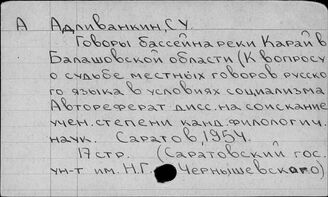 А Адливанкин, С.У.
Говоры бассейна реки Карай в
Балашовской области (К вопросу
о судьбе местных говоров русско
го языка в условиях социализма
Автореферат дисс. на соискание
учен. степени канд. филологич.
наук. Саратов, 1954.
17 стр. (Саратовский гос.
ун-т им. Н.Г. Чернышевского)